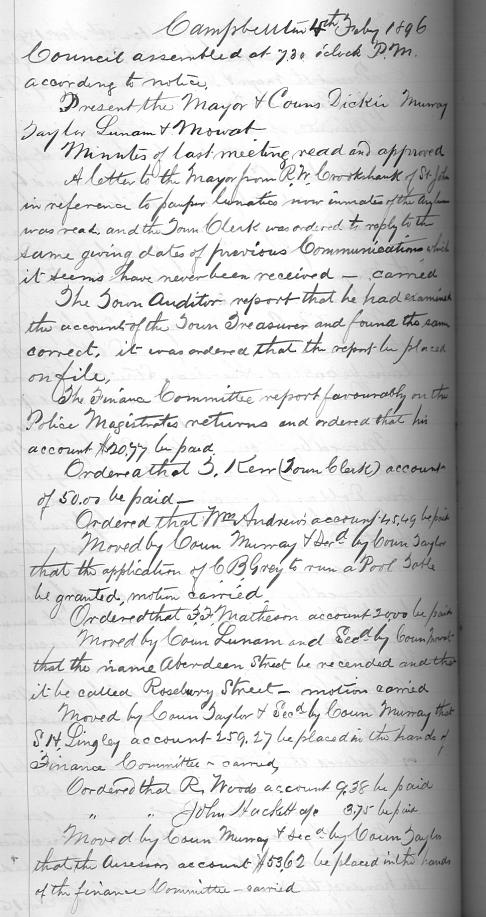 Campbellton 4th Feby 1896
Council assembled at 7.30 o'clock P.M.
according to notice.
Present the Mayor & Couns Dickie Murray
Taylor Lunam & Mowat
Minutes of last meeting read and approved
A letter to the Mayor from R.W. Crookshank of St John
in reference to pauper lunatics now inmates of the Asylum
was read and the Town Clerk was ordered to reply to the
same giving dates of previous Communications which
it seems have never been received — carried
The Town Auditor report that he had examined
the accounts of the Town Treasurer and found the same
correct, it was ordered that the report be placed
on file.
The Finance Committee report favourably on the
Police Magistrates returns and ordered that his
account $20.77 be paid
Ordered that T. Kerr (Town Clerk) account
of 50.00 be paid —
Ordered that Wm Andrews account 45.49 be paid
Moved by Coun Murray & Secd by Coun Taylor
that the application of C B Grey to run a Pool Table
be granted, motion carried.
Ordered that F.F. Matheson account 20.00 be paid
Moved by Coun Lunam and Secd by Coun Mowat
that the name Aberdeen Street be recended and that
it be called Rosebury Street — motion carried
Moved by Coun Taylor & Secd by Coun Murray that
S.H. Lingley account 259.27 be placed in the hands of
Finance Committee — carried
Oordered that R. Woods account 9.38 be paid
" " John Hackett a/c 3.75 be paid
Moved by Coun Murray & Secd by Coun Taylor
that the Assessors account $53.62 be placed in the hands
of the finance Committee — carried